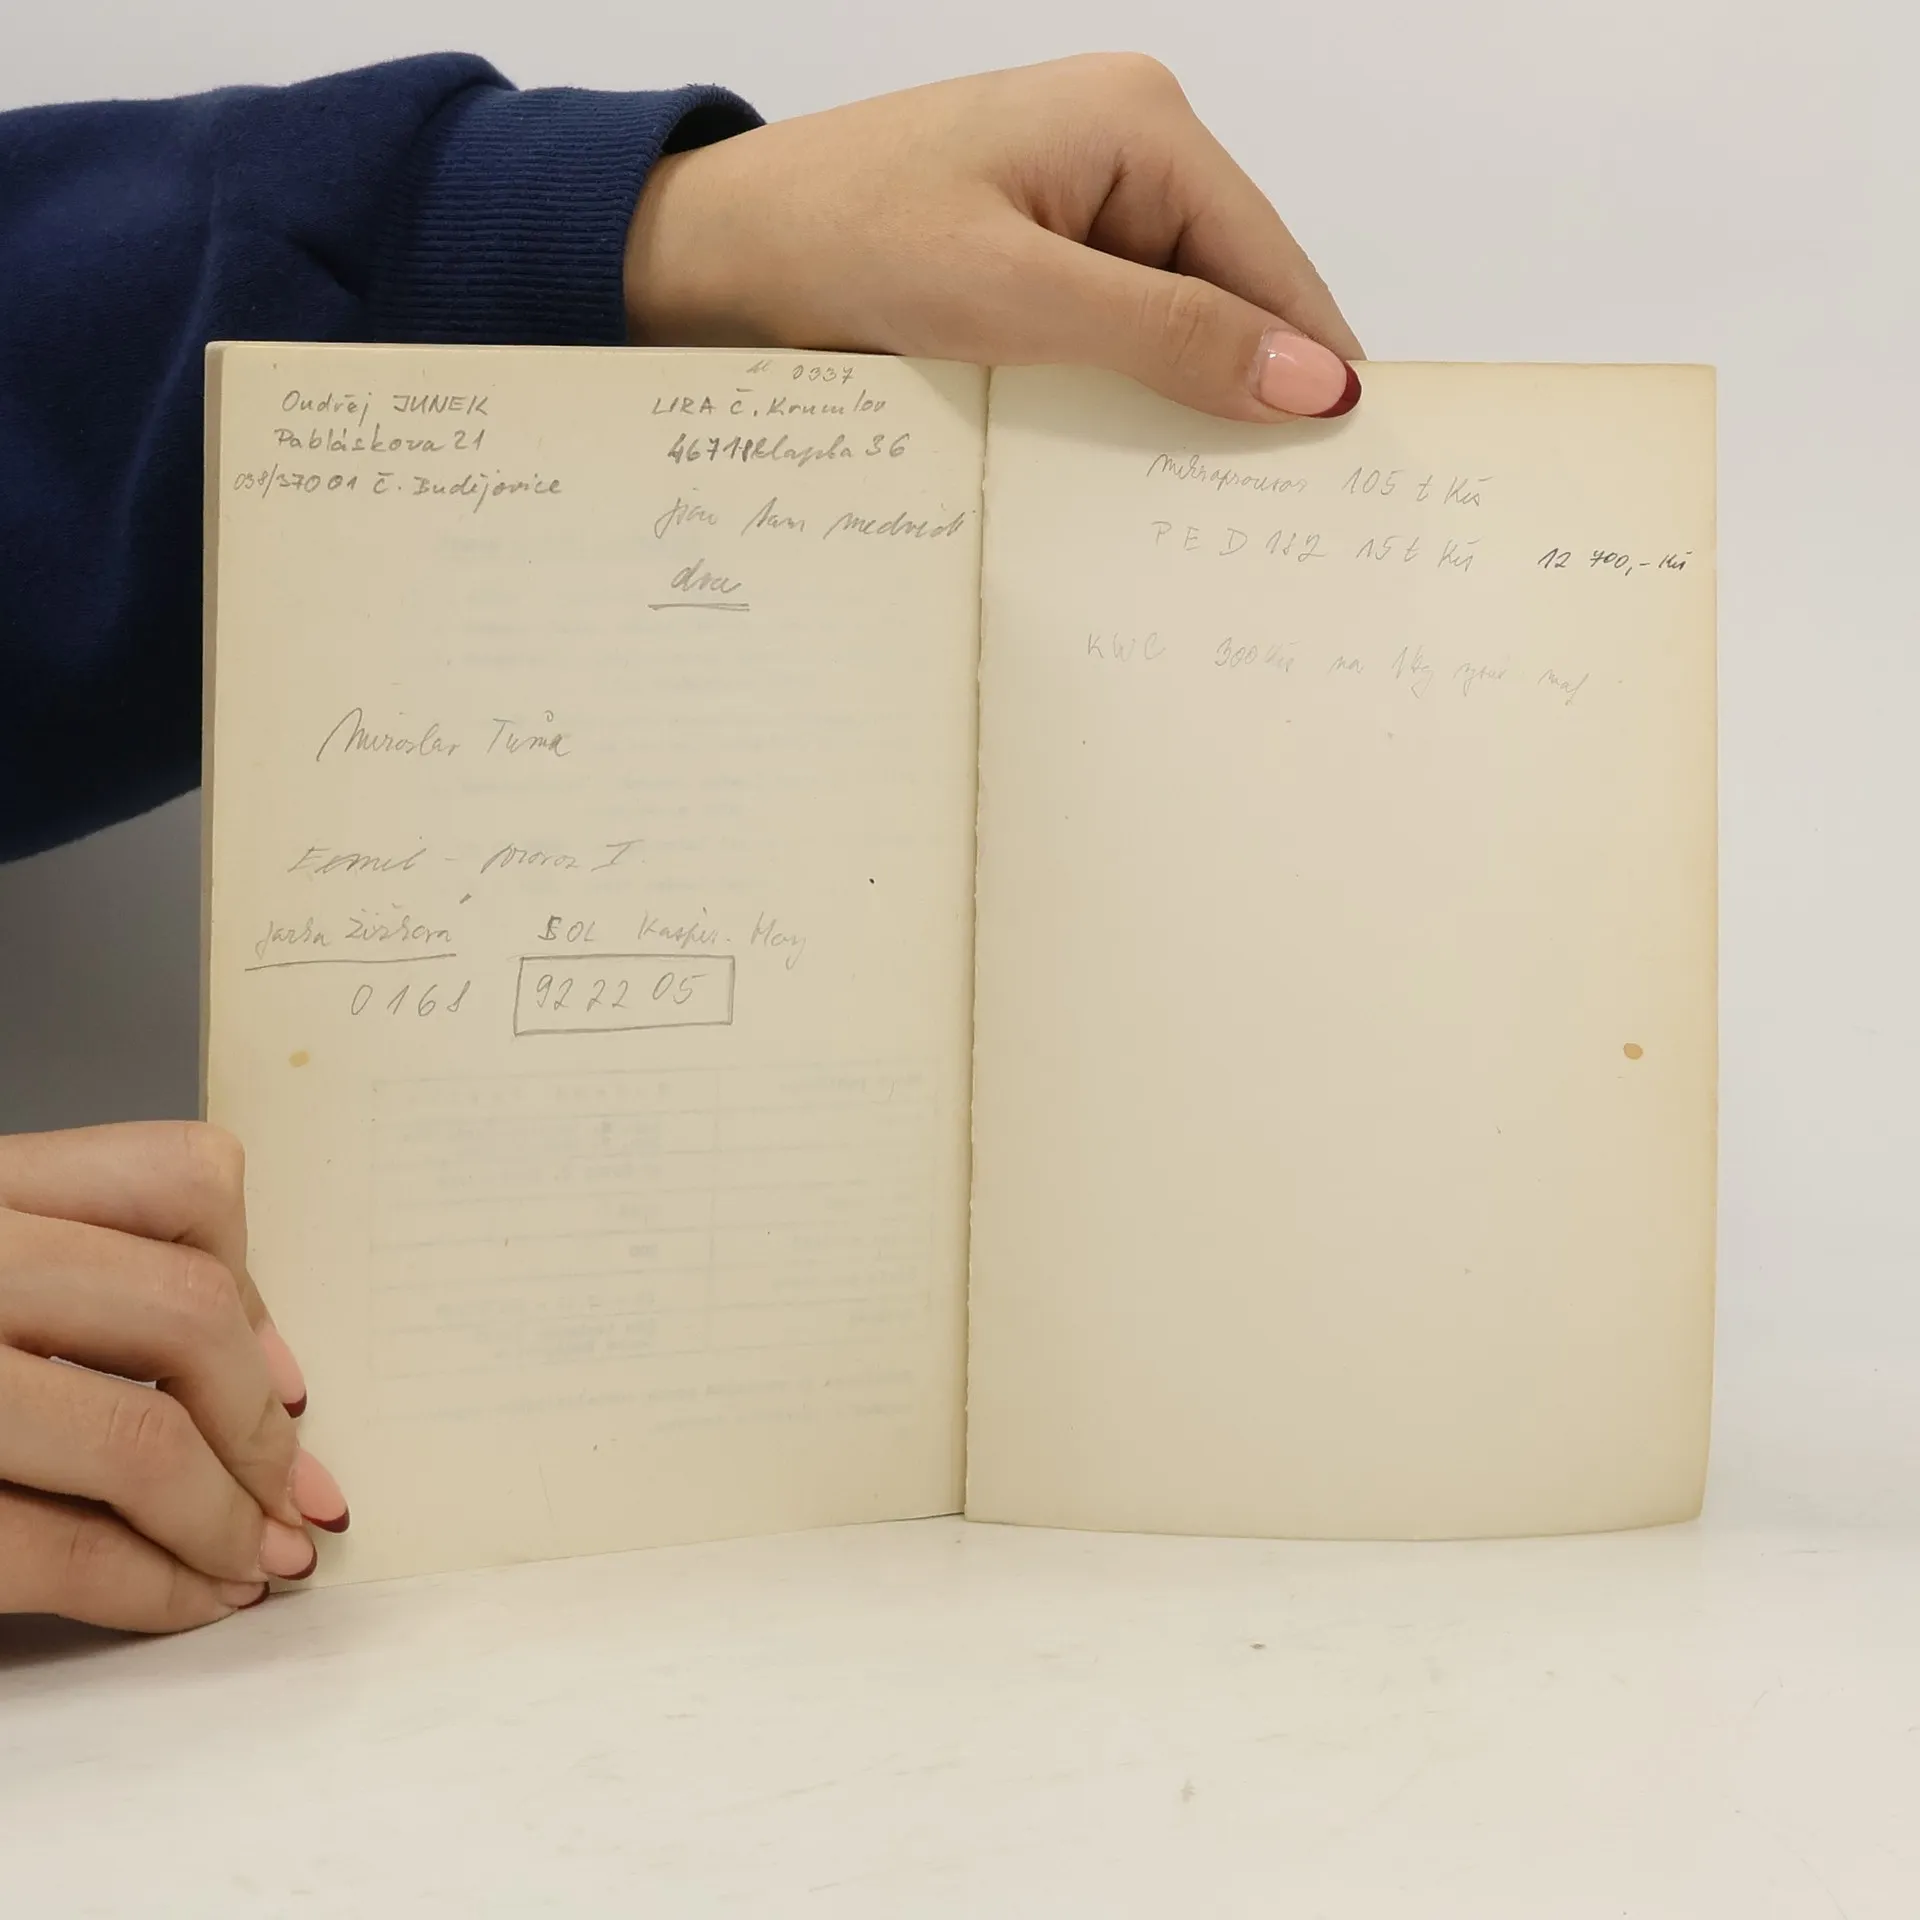 Ondřej JUNEK
Pabláskova 21
038/37001 Č. Budějovice
0337
LIRA Č. Krumlov
4671 klapka 36
jsou tam medvědi
dva
Miroslav Tůma
Eemil - provoz I.
Jarka Žižková
0168
SOL Kašper. Hory
92 22 05
105 t Kčs
PED 182 15 t Kčs 12 700,- Kčs
KWC 300 Kčs na 1 kg